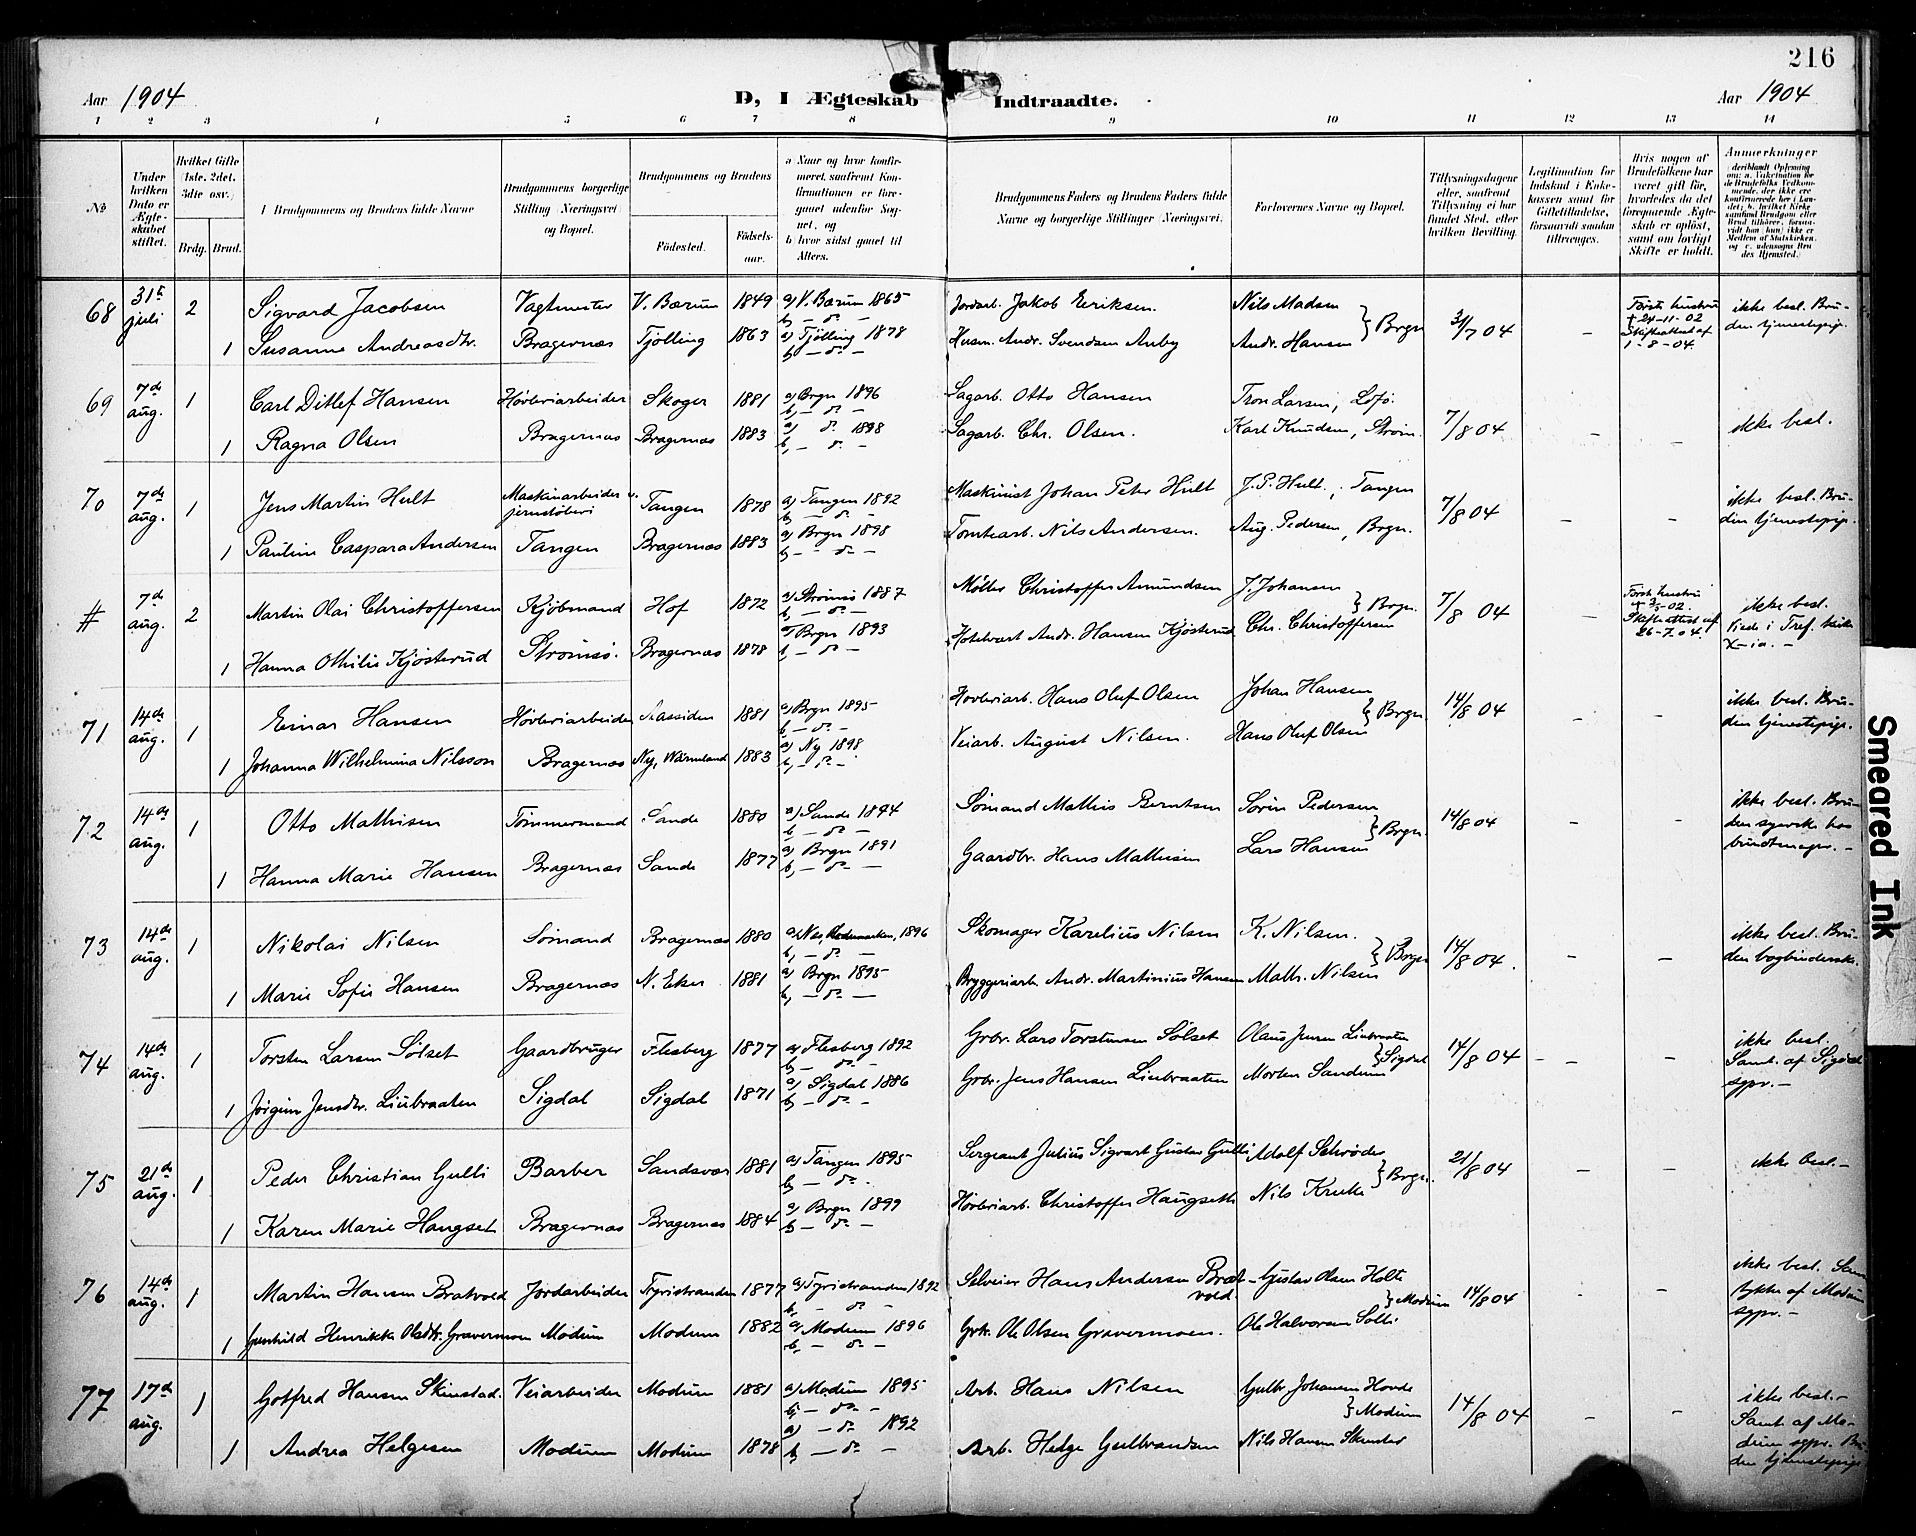 216
Aar 1904 D, I Ægteskab Indtraadte. Aar 1904
1 2 3 4 5 6 7 8 9 10 11 12 13 14
No
Under hvilken Dato er Ægteskabet stiftet.
Hvilket Gifte (1ste, 2det, 3die osv.)
Brdg. Brud.
Brudgommens og Brudens fulde Navne
Brudgommens borgerlige Stilling (Næringsvei) og Bopæl.
Brudgommens og Brudens
Fødested. Fødselsaar.
a Naar og hvor konfirmeret, saafremt Konfirmationen er foregaaet udenfor Sognet, og
b) hvor sidst gaaet til Alters.
Brudgommens Faders og Brudens Faders fulde Navne og borgerlige Stillinger (Næringsvei).
Forlovernes Navne og Bopæl.
Tillysningsdagene eller, saafremt Tillysning ei har fundet Sted, efter hvilken Bevilling.
Legitimation for Indskud i Enkekassen samt for Giftetilladelse, forsaavidt saadan tiltrænges.
Hvis nogen af Brudefolkene har været gift før, hvorledes da det foregaaende Ægteskab er opløst, samt om lovligt Skifte er holdt.
Anmerkninger
68 31te juli 2 Sigvard Jacobsen Vagtmester V. Bærum 1849 a) V. Bærum 1865 b, - do - Jordarb. Jakob Eeriksen. Nils Madsen } Brgn 31/7 04 - Første hustru + 24-11-02 Skifteattest af 1-8-04. ikke besl. Bruden tjenestepige.
1 Susanne Andreasdtr. Bragernæs Tjølling 1863 a) Tjølling 1878 b, - do - Husm. Andr. Svendsen Auby Andr. Hansen
69 7de aug. 1 Carl Ditlef Hansen Høvleriarbeider Skoger 1881 a) Brgn 1896 b, - do - Sagarb. Otto Hansen Tron Larsen, 7/8 04 - - ikke besl.
1 Ragna Olsen Bragernæs Bragernæs 1883 a) do 1898 b, - do - Sagarb. Chr. Olsen. Karl Knudsen, Strøm.
70 7de aug. 1 Jens Martin Hult Maskinarbeider v. jernstøberi Tangen 1878 a) Tangen 1892 b - do - Maskinist Johan Peter Hult J. P. Hult, Tangen 7/8 04 - - ikke besl. Bruden tjenestepige.
1 Pauline Caspara Andersen Tangen Bragernæs 1883 a) Brgn 1898 b - do - Tomtearb. Nils Andersen. Aug. Pedersen, Brgn.
# 7de aug. 2 Martin Olai Christoffersen Kjøbmand Hof 1872 a) Strømsø 1887 b, - do - Møller Christoffer Amundsen J. Johansen } Brgn. 7/8 04 - Første hustru Skifteattest af 26-7-04. ikke besl.
1 Hanna Othilie Kjøsterud Strømsø. Bragernæs 1878 a) Brgn 1893 b, - do - Hotelvært Andr. Hansen Kjøsterud Chr. Christoffersen
71 14de aug. 1 Einar Hansen Høvleriarbeider Aassiden 1881 a) Brgn 1895 b, - do - Høvleriarb. Hans Oluf Olsen Johan Hansen } Brgn. 14/8 04 - - ikke besl. Bruden tjenestepige.
1 Johanna Wilhelmina Nilsson Bragernæs Ny, Wärmland 1883 a) Ny 1898 b, - do - Veiarb. August Nilsen. Hans Oluf Olsen
72 14de aug. 1 Otto Mathisen Tømmermand Sande 1880 a) Sande 1894 b, - do - Sømand Mathis Berntsen Søren Pedersen } Brgn 14/8 04 - - ikke besl. Bruden syerske hos bundtmager. -
1 Hanna Marie Hansen Bragernæs Sande 1877 a) Brgn 1891 b, - do - Gaardbr. Hans Mathisen Lars Hansen
73 14de aug. 1 Nikolai Nilsen Sømand Bragernæs 1880 a) Nes, Hedemarken, 1896 b, - do - Skomager Karelius Nilsen K. Nilsen. } Brgn 14/8 04. - - ikke besl. Bruden bogbinderske.
1 Marie Sofie Hansen Bragernæs N. Eker 1881 a) Brgn 1895 b, - do - Bryggeriarb. Andr. Martinius Hansen Math. Nilsen
74 14de aug. 1 Torsten Larsen Sølset Gaardbruger Flesberg 1877 a) Flesberg 1892 b - do - Grbr. Lars Torstensen Sølset Olaus Jensen Liubraaten } Sigdal 14/8 04 - - - ikke besl. Samt. af Sigdal sgpr. -
1 Jørgine Jensdtr. Liubraaten Sigdal Sigdal 1871 a) Sigdal 1886 b - do - Grbr. Jens Hansen Liubraaten Morten Sandum
75 21de aug. 1 Peder Christian Gulli Barber Sandsvær 1881 a) Tangen 1895 b - do - Sergeant Julius Sigvart Gustav Gulli Adolf Schrøder } Brgn. 21/8 04 - - ikke besl. -
1 Karen Marie Haugset Bragernæs Bragernæs 1884 a) Brgn 1899 b - do - Høvleriarb. Christoffer Haugseth Nils Kruke
76 14de aug. 1 Martin Hansen Bratvold Jordarbeider Tyristranden 1877 a) Tyristranden 1892 b, - do - Selveier Hans Andersen Bratvold Gustav Olsen Holte } Modum 14/8 04 - - ikke besl. Samtykke af Modum sgpr. -
1 Gunhild Henrikke Olsdtr. Gravermoen Modum Modum 1882 a) Modum 1896 b, - do - Grbr. Ole Olsen Gravermoen. Ole Halvorsen Solli
77 17de aug. 1 Gotfred Hansen Skinstad. Veiarbeider Modum 1881 a) Modum 1895 b, - do - Arb. Hans Nilsen Gulbr. Johansen Hovde } Modum 14/8 04 - - ikke besl. - Samt. af Modum sgpr. Bruden tjenestepige
1 Andrea Helgesen Modum Modum 1878 a) - do - 1892 b - do - Arb. Helge Gulbrandsen Nils Hansen Skinstad
Smeared Ink